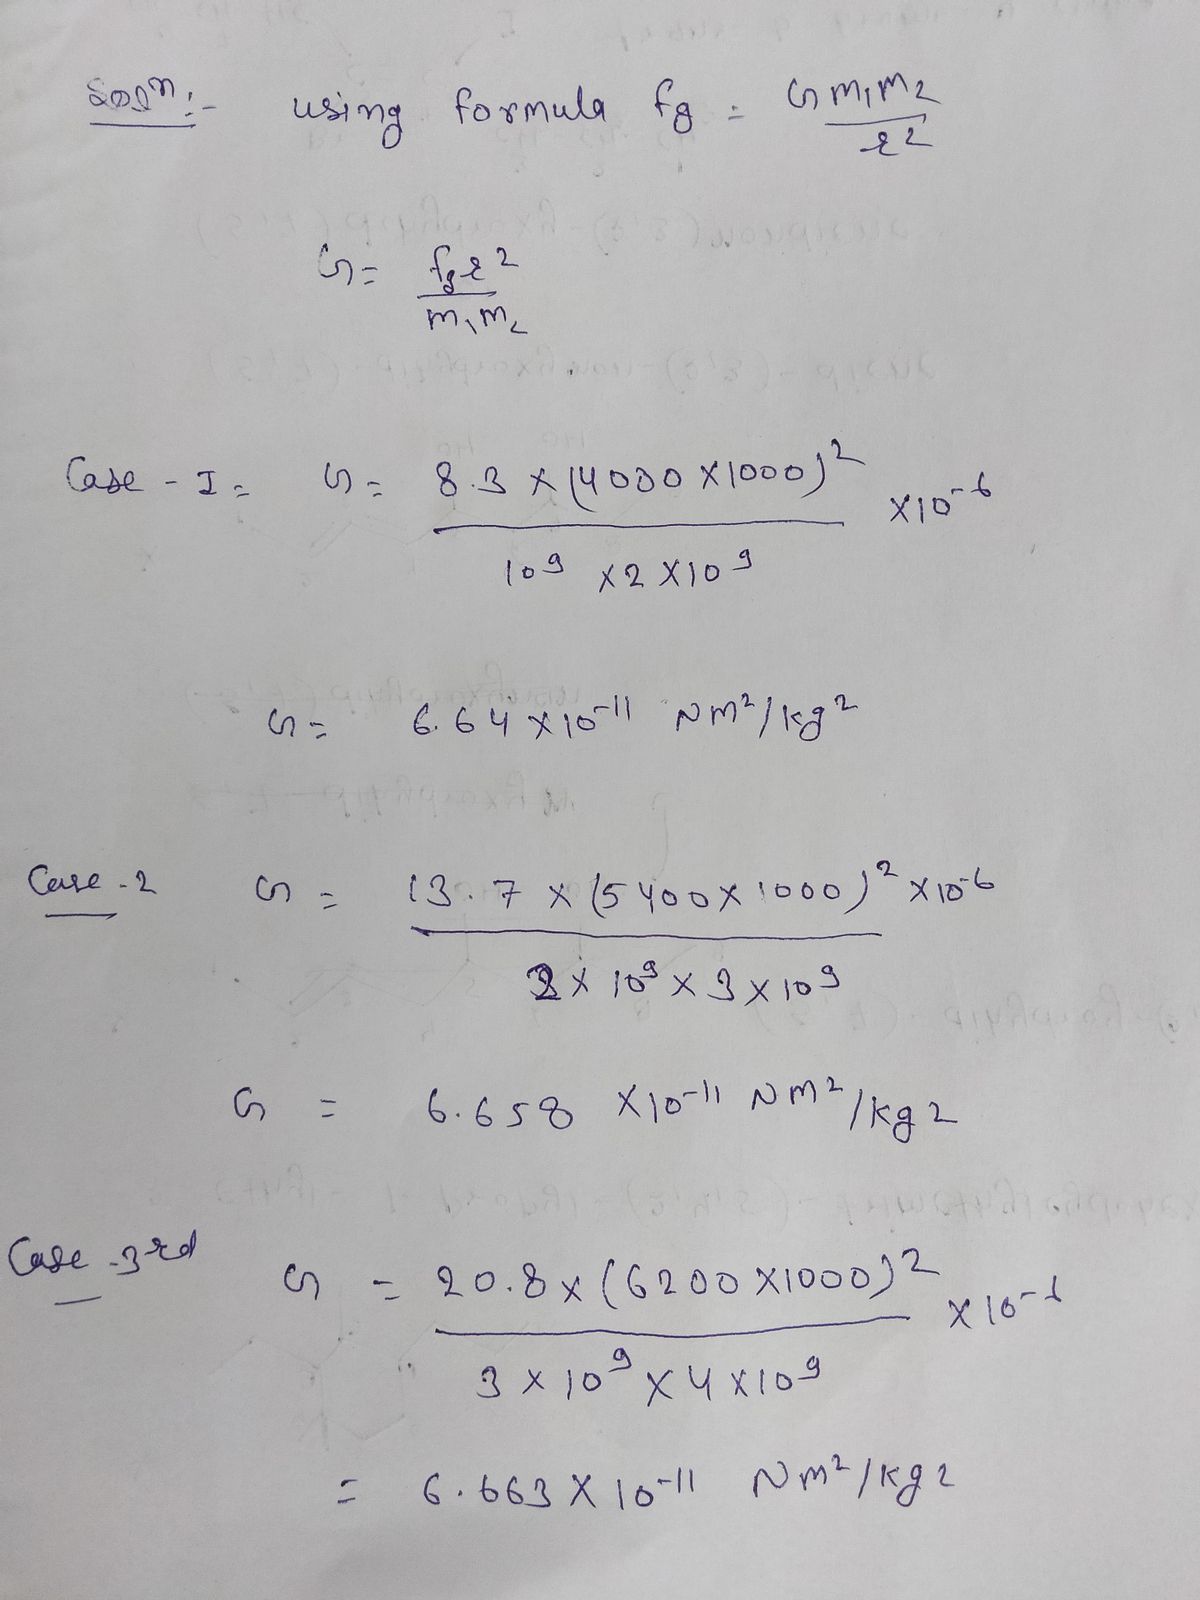 Solⁿ:- using formula fg = G m₁m₂ / r²
G = fg r² / m₁m₂
Case - I = G = 8.3 × (4000 × 1000)² / 10⁹ × 2 × 10⁹ × 10⁻⁶
G = 6.64 × 10⁻¹¹ Nm²/kg²
Case - 2 G = 13.7 × (5400 × 1000)² × 10⁻⁶ / 2 × 10⁹ × 3 × 10⁹
G = 6.658 × 10⁻¹¹ Nm²/kg2
Case - 3rd G = 20.8 × (6200 × 1000)² / 3 × 10⁹ × 4 × 10⁹ × 10⁻⁶
= 6.663 × 10⁻¹¹ Nm²/kg2